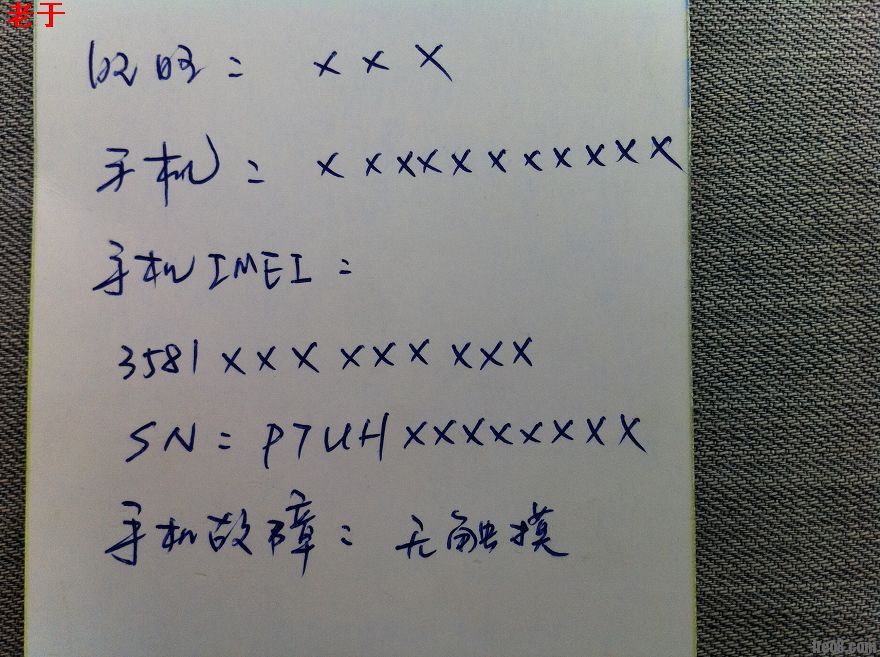 老于
旺旺: X X X
手机: X X X X X X X X X X X
手机IMEI:
3581 X X X X X X X X X
SN: P7UH X X X X X X X X
手机故障: 无触摸